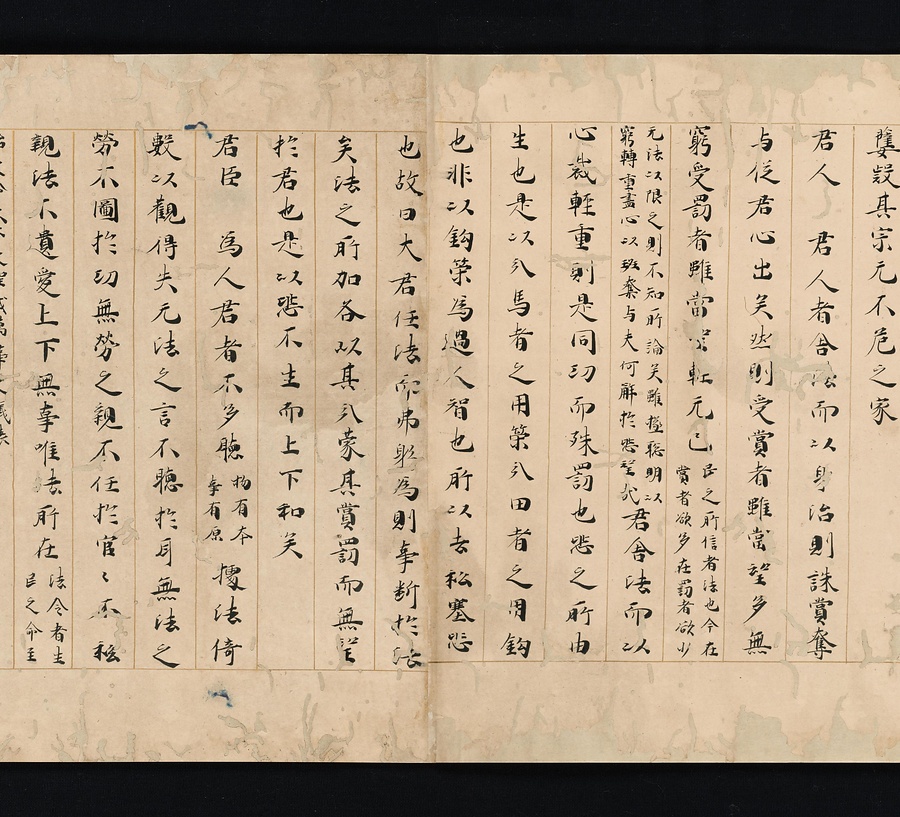 孽疑其宗无不危之家
君人　君人者舍法而以身治則誅賞奪
与従君心出矣然則受賞者雖當望多無
窮受罰者雖當望軽无已
民之所信者法也今在
賞者欲多在罰者欲少
无法以限之則不知所論矣雖極聡明以
窮轉重盡心以班奪与夫何解於怨望哉
君舍法而以
心裁輕重則是同功而殊罰也怨之所由
生也是以分馬者之用策分田者之用鈎
也非以鈎策為過人智也所以去私塞怨
也故曰大君任法而弗躬為則事断於法
矣法之所加各以其分蒙其賞罰而無望
於君也是以怨不生而上下和矣
君臣　為人君者不多聴
物有本
事有原
據法倚
數以觀得失无法之言不聴於耳無法之
勞不圖於功無勞之親不任於官々不私
親法不遺愛上下無事唯法所在
法令者生
民之命至